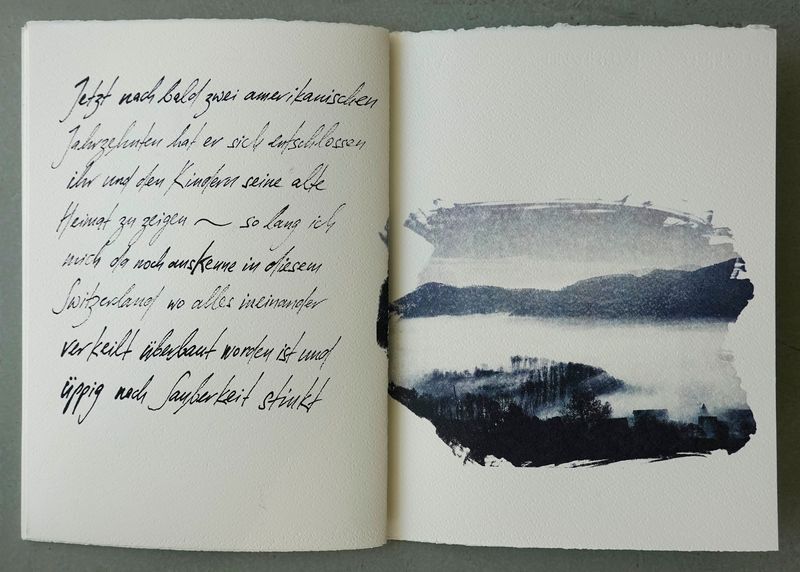 Jetzt nach bald zwei amerikanischen
Jahrzehnten hat er sich entschlossen
ihr und den Kindern seine alte
Heimat zu zeigen ~ so lang ich
mich da noch auskenne in diesem
Switzerland wo alles ineinander
verkeilt überbaut worden ist und
üppig nach Sauberkeit stinkt